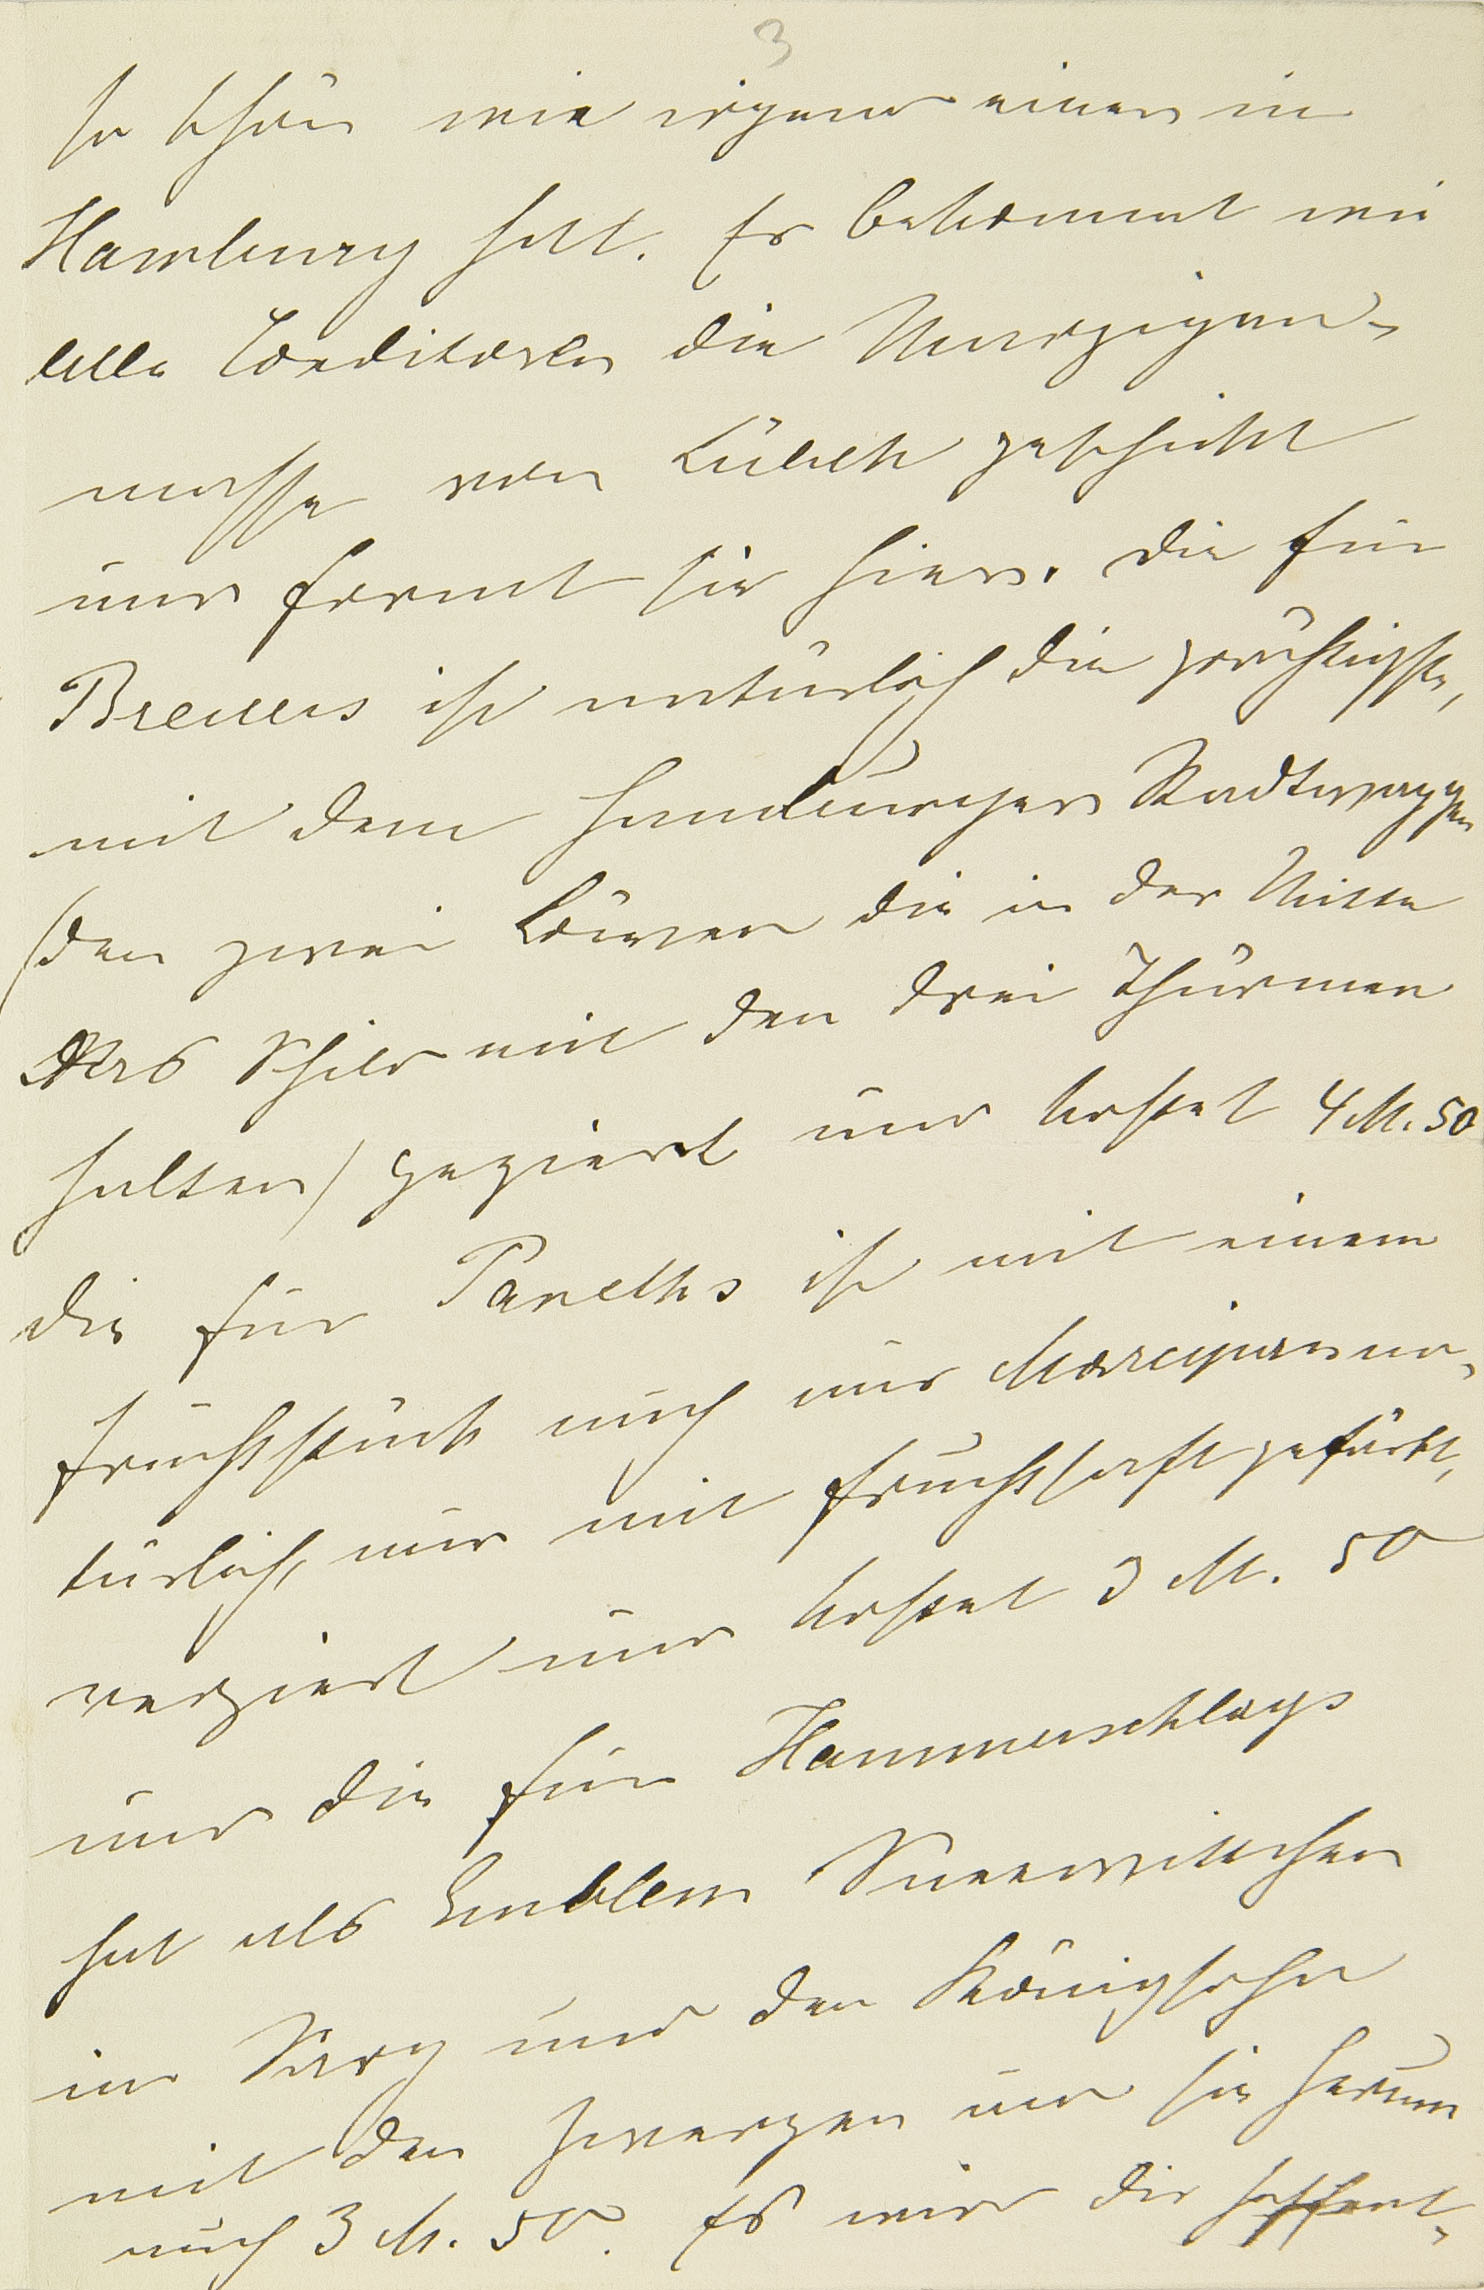 3
so schön wie irgend einer in
Hamburg hat. Er bekommt wie
alle Conditoren die Marzipan-
masse von Lübeck geschickt
und formt sie hier. Die für
Breuers ist natürlich die prächtigste,
mit dem Hamburger Stadtwappen
(den zwei Löwen die in der Mitte
das Schild mit den drei Thürmen
halten) geziert und kostet 4 M. 50
die für Paneths ist mit einem
Fruchtstück auch aus Marcipan na-
türlich, nur mit Fruchtsaft gefärbt,
verziert und kostet 3 M. 50
und die für Hammerschlags
hat als Emblem Sneewittchen
im Sarg und den Königssohn
mit den Zwergen um sie herum
auch 3 M. 50. Es wird dir hoffent-